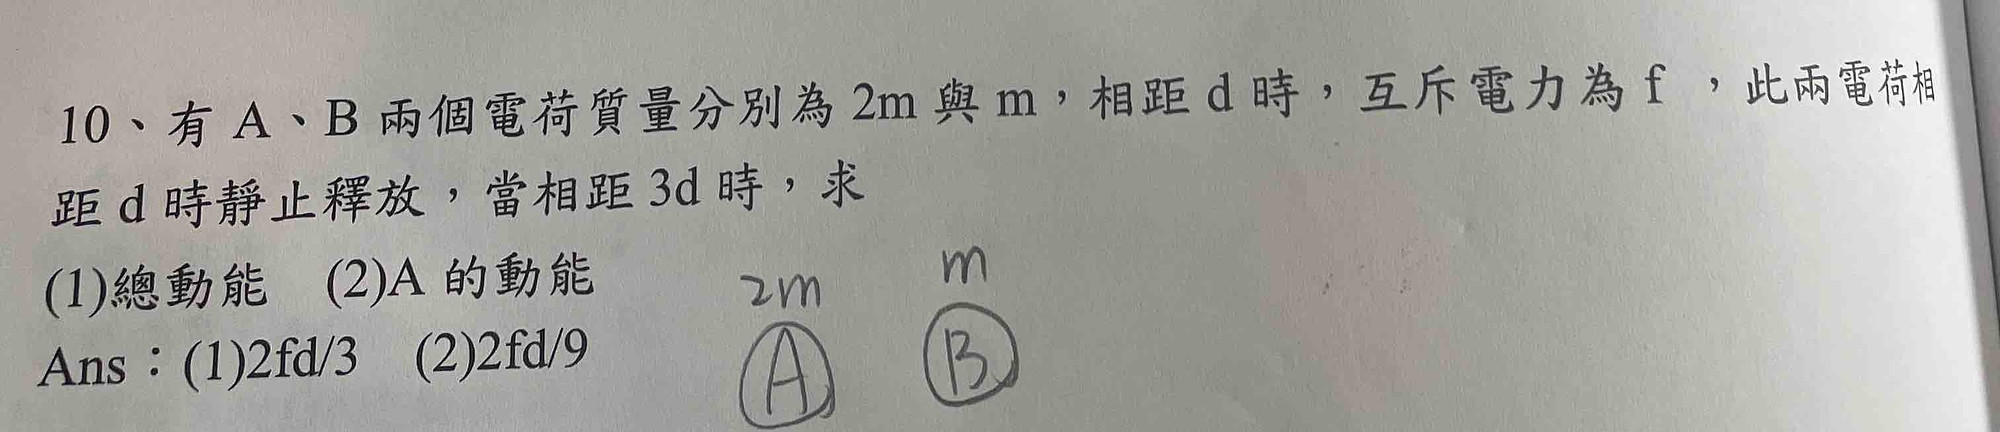 10、有 A、B 兩個電荷質量分別為 2m 與 m，相距 d 時，互斥電力為 f ，此兩電荷相
距 d 時靜止釋放，當相距 3d 時，求
(1)總動能 (2)A 的動能
Ans：(1)2fd/3 (2)2fd/9
2m m
A B